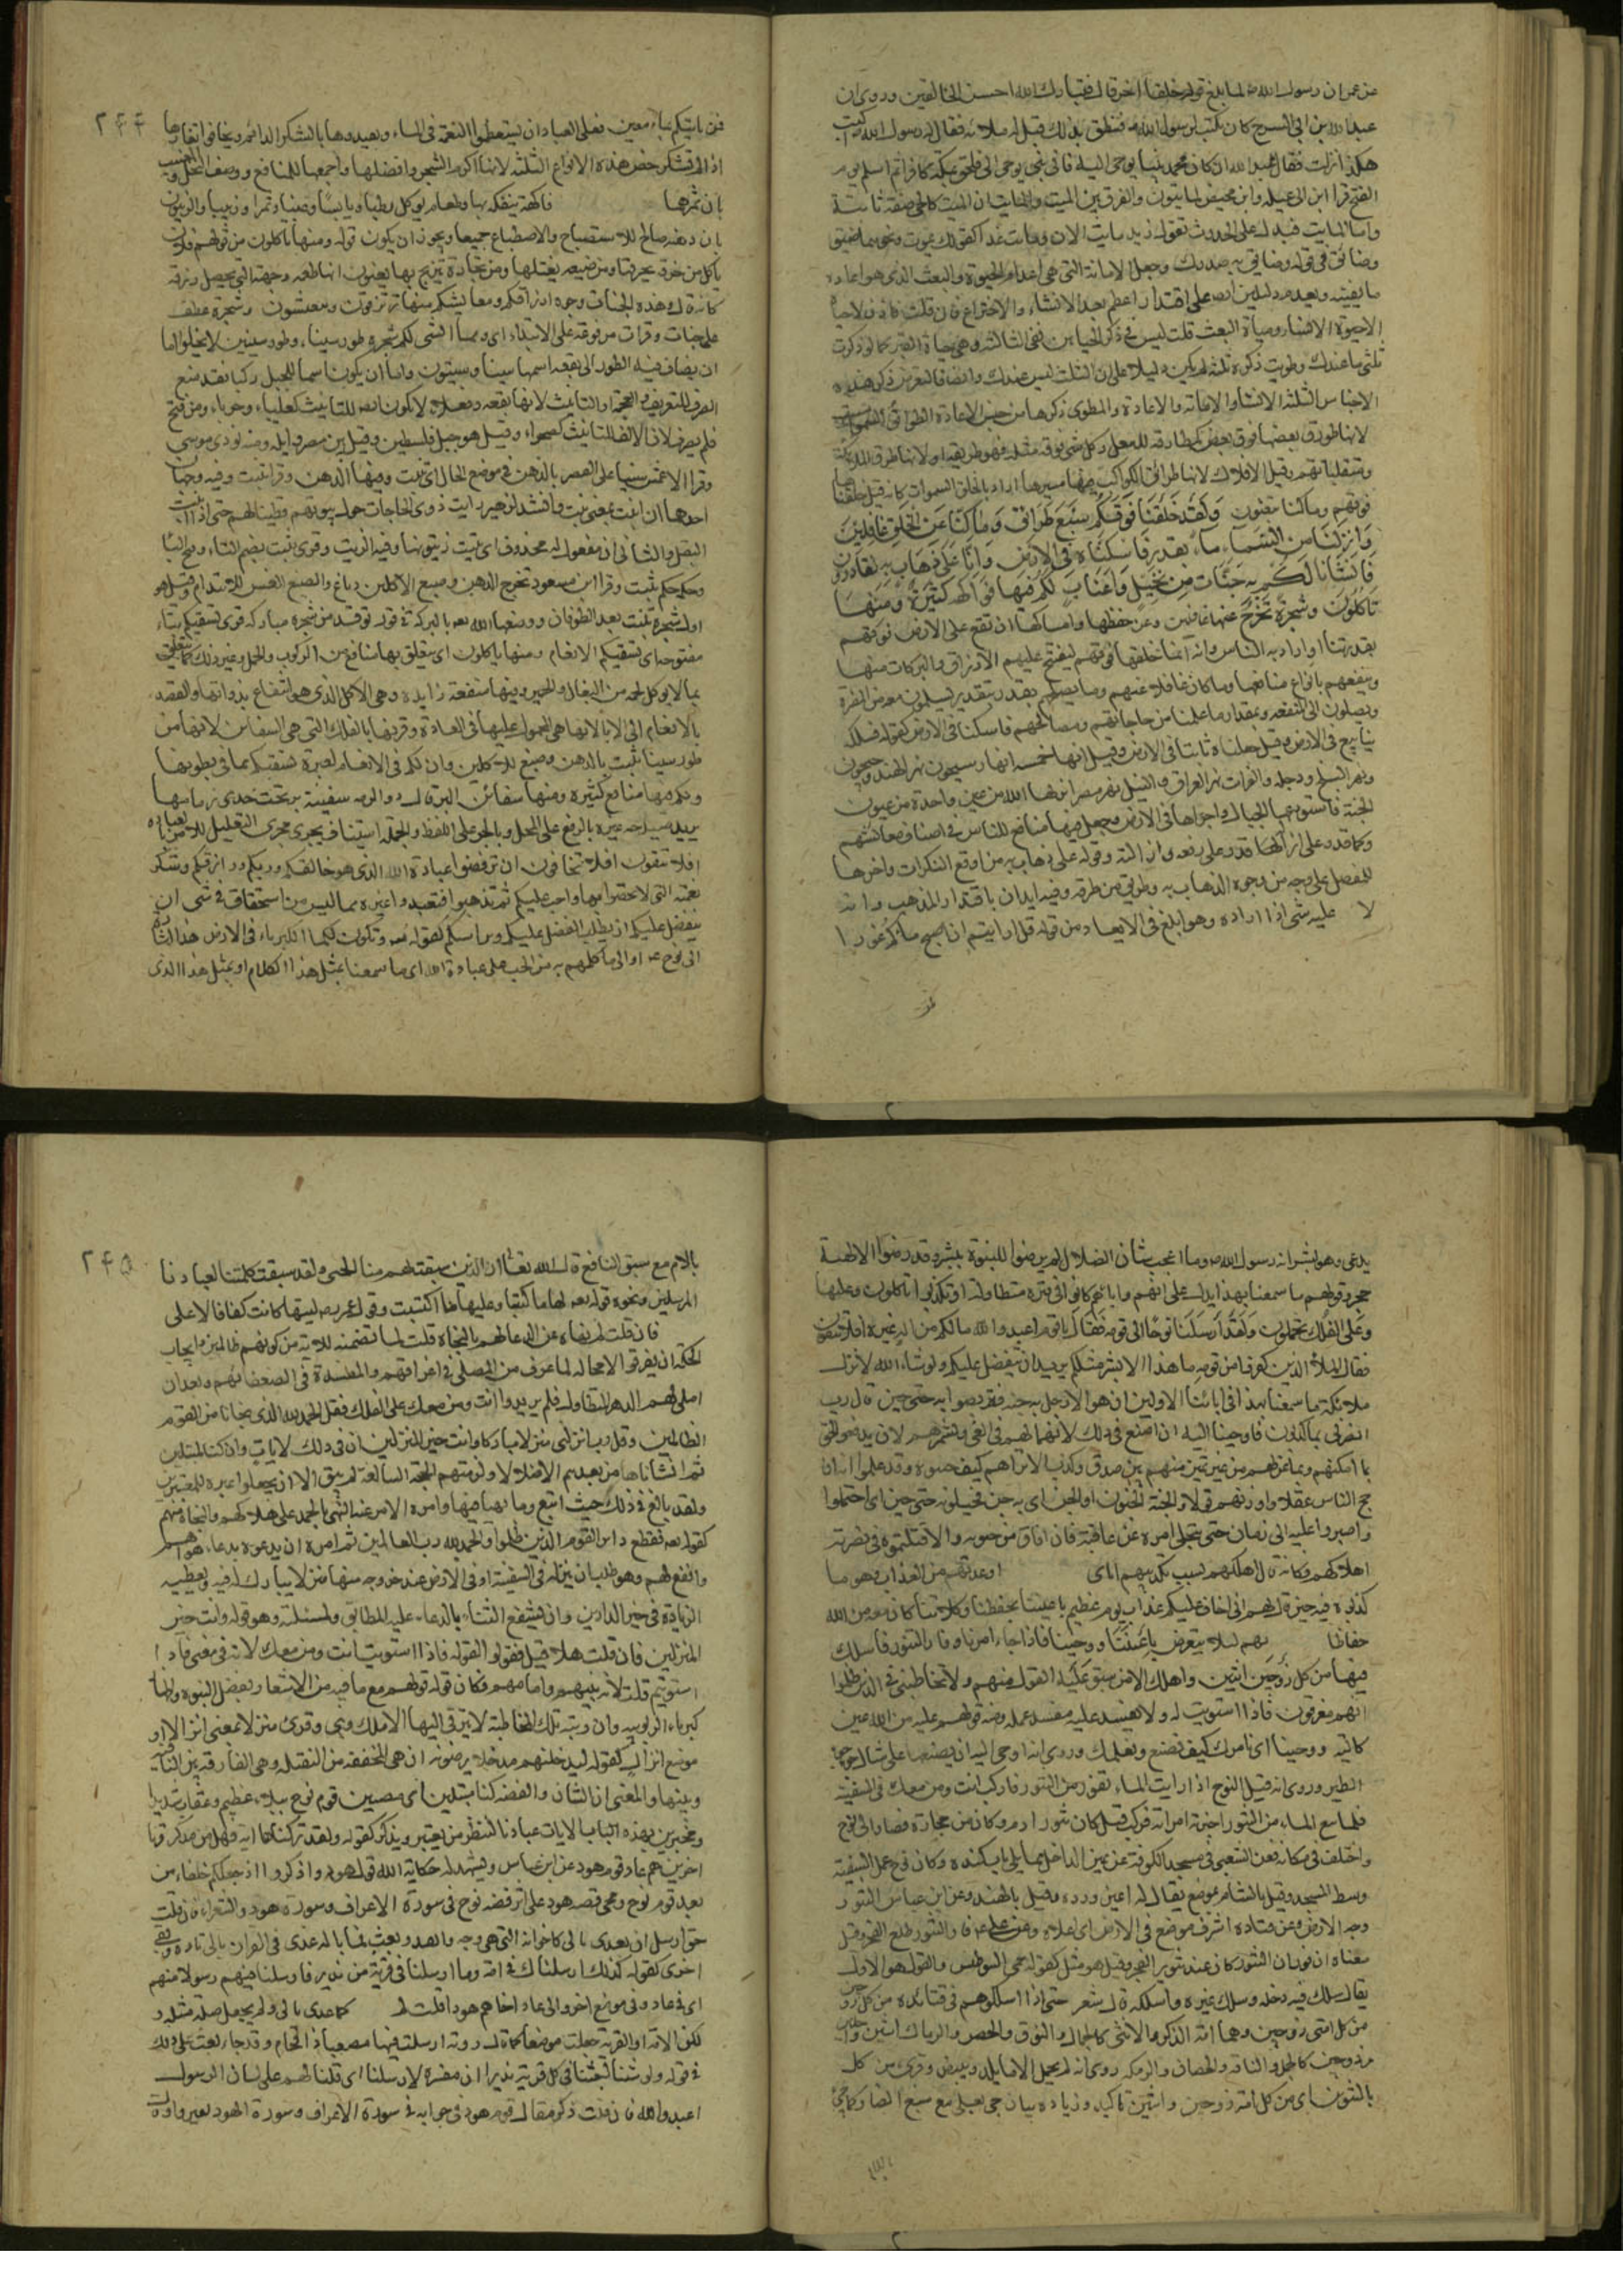 عن عمران رسول الله صلما بلغ قوله خلقا اخر قال فتبارك الله احسن الخالقين وروى ان
عبدالله بن ابى السرح كان يكتب لرسول الله فنطق بذلك قبل املائه فقال له رسول الله اكتب
هكذا نزلت فقال عبد الله ان كان محمد نبيا يوحى اليه فانى نبى يوحى الى فلحق بمكة كافرا ثم اسلم يوم
الفتح قرا ابن ابى عبله وابن محيصن لمايتون والفرق بين الميت والمايت ان الميت كالحى صفة ثابتة
واما المايت فيدل على الحدوث تقول زيد مايت الان ومايت غدا كقولك يموت ونحوهما ضيق
وضائق فى قوله وضائق به صدرك وجعل الاماتة التى هى اعدام الحيوة والبعث الذى هو اعادة
ما يفنيه ويعدمه دليلين ايضا على اقتدار عظيم بعد الانشاء والاختراع فان قلت فاذن لا حيوة
الا حيوة الانشاء وحيوة البعث قلت ليس فى ذكر الحياتين نفى الثالثة وهى حياة القبر كما لو ذكرت
ثلثى ما عندك وطويت ذكر ثلثه لم يكن دليلا على ان الثلث ليس عندك وايضا فالغرض ذكر هذه
الاجناس الثلثة الانشا والاماته والاعادة والمطوى ذكرها من جنس الاعادة الطرائق السموات
لانها طورق بعضها فوق بعض كمطارقه النعل وكل شى فوقه مثله فهو طريقه او لانها طرق الملائكة
ومتقلباتهم وقيل الافلاك لانها طرائق الكواكب فيها مسيرها اراد بالخلق السموات كانه قيل خلقنا
فوقهم وما كنا عنها وَلَقَدْ خَلَقْنَا فَوْقَكُمْ سَبْعَ طَرَائِقَ وَمَا كُنَّا عَنِ الْخَلْقِ غَافِلِينَ
وَاَنْزَلْنَا مِنَ السَّمَاءِ مَاءً بِقَدَرٍ فَاَسْكَنَّاهُ فِى الْاَرْضِ وَاِنَّا عَلَى ذَهَابٍ بِهِ لَقَادِرُونَ
فَاَنْشَاْنَا لَكُمْ بِهِ جَنَّاتٍ مِنْ نَخِيلٍ وَاَعْنَابٍ لَكُمْ فِيهَا فَوَاكِهُ كَثِيرَةٌ وَمِنْهَا
تَاْكُلُونَ وَشَجَرَةً تَخْرُجُ عنها غافلين وعن حفظها وامساكها ان تقع على الارض فوقهم
بقدرتنا او اراد به الناس وانه انما خلقها فوقهم ليفتح عليهم الارزاق والبركات منها
وينفعهم بانواع منافعها وما كان غافلا عنهم وما يصلحهم بقدر بتقدير يسلمون معه من المضرة
ويصلون الى المنفعه وبمقدار ما علمنا من حاجاتهم ومصالحهم فاسكناه فى الارض كقوله فسلكه
ينابيع فى الارض وقيل جعلناه ثابتا فى الارض وقيل انها خمسه انهار سيحون نهر الهند وجيحون
ونهر البلخ ودجله والفرات نهر العراق والنيل نهر مصر انزلها الله من عين واحدة من عيون
الجنة فاستودعها الجبال واجراها فى الارض وجعل فيها منافع للناس فى اصناف معائشهم
وكما قدر على انزالها قدر على رفعه وازالته وقوله على ذهاب به من اوقع النكرات واحزها
للمفصل على وجه من وجوه الذهاب به وطريق من طرقه وفيه ايذان باقتدار المذهب وانه
لا عليه شى اذا اراده وهو ابلغ فى الايعاد من قوله قل ارايتم ان اصبح ماؤكم غورا
فمن
٢٤٤
فمن ياتيكم بماء معين فعلى العباد ان يستعظموا النعمة فى الماء ويقيدوها بالشكر الدائم ويخافوا نفارها
اذا لم تشكر خص هذه الانواع الثلثة لانها اكرم الشجر وافضلها واجمعها للمنافع ووصف النخل والعنب
بان ثمرها فاكهة يتفكه بها وطعام يوكل رطبا ويابسا وعنبا وتمرا وزبيبا والزيتون
بان دهنه صالح للاستصباح والاصطباغ جميعا ويجوز ان يكون قوله ومنها تاكلون من قولهم فلان
ياكل من حرفة يحترفها ومن ضيعه يغتلها ومن تجارة يتربح بها يعنون انها طعمه وجهته التى يحصل رزقه
كانه قال هذه الجنات وجوه ارزاقكم ومعايشكم منها ترتزقون وتعيشون وشجرة عطف
على جنات وقرات مرفوعه على الابتداء اى ومما انشى لكم شجرة طور سيناء وطور سينين لا يخلو اما
ان يضاف فيه الطور الى بقعه اسمها سينا وسينون واما ان يكون اسما للجبل مركبا
فلم يصرف لان الالف للتانيث كصحراء وقيل هو جبل فلسطين وقيل بين مصر وايله ومنه نودى موسى
وقرا الاعمش سينا على القصر بالدهن فى موضع الحال اى تنبت وفيها الدهن وقرا تنبت وفيه وجهان
احدهما ان انبت بمعنى نبت وانشد لزهير رايت ذوى الحاجات حول بيوتهم قطينا لهم حتى اذا انبت
البقل والثانى ان مفعوله محذوف اى تنبت زيتونها وفيه الزيت وقرى تنبت بضم التاء وفتح البا
اول شجرة نبتت بعد الطوفان ووصفها الله بالبركة فى قوله توقد من شجرة مباركه قرى تسقيكم بتاء
مفتوحه اى تسقيكم الانعام ومنها تاكلون اى تتعلق بها منافع من الركوب والحمل وغير ذلك كما تتعلق
بما لا يوكل لحمه من البغال والحمير وفيها منفعة زايده وهى الاكل الذى هو انتفاع بذواتها والقصد
بالانعام الى الابل لانها هى المحمول عليها فى العادة وقرنها بالفلك التى هى السفاين لانها
طور سينا تنبت بالدهن وصبغ للاكلين وان لكم فى الانعام لعبرة نسقيكم مما فى بطونها
ولكم فيها منافع كثيرة ومنها سفائن البر قال ذو الرمه سفينة بر تحت خدى زمامها
يريد صيدحه غيره بالرفع على المحل وبالجر على اللفظ والجملة استيناف يجرى مجرى التعليل للامر بالعباده
افلا تتقون افلا تخافون ان ترفضوا عبادة الله الذى هو خالقكم وربكم ورازقكم وشكر
نعمته التى لا تحصوا بها واجب عليكم ثم تذهبوا فتعبدوا غيره مما ليس من استحقاق فى شى ان
يتفضل عليكم ان يطلب الفضل عليكم ويراسكم كقوله وتكون لكما الكبرياء فى الارض هذا اشارة
الى نوح او الى ما كلمهم به من الحث على عبادة الله اى ما سمعنا بمثل هذا الكلام او بمثل هذا الذى
يدعى وهو بشر انه رسول الله وما اعجب شان الضلال لم يرضوا للنبوة ببشر وقد رضوا الالهية
حجر وقولهم ما سمعنا بهذا يدل على انهم واباؤهم كانوا فى فترة متطاولة او تكذبوا تاكلون وعليها
وعلى الفلك تحملون ولقد ارسلنا نوحا الى قومه فقال يا قوم اعبدوا الله مالكم من اله غيره افلا تتقون
فقال الملا الذين كفروا من قومه ما هذا الا بشر مثلكم يريد ان يتفضل عليكم ولو شاء الله لانزل
ملائكة ما سمعنا بهذا فى ابائنا الاولين ان هو الا رجل به جنه فتربصوا به حتى حين قال رب
انصرنى بما كذبون فاوحينا اليه ان اصنع فى ذلك لانهماكهم فى الغى وتشمرهم لان يدفعوا الحق
بما امكنهم وبما عن لهم من غير تمييز منهم بين صدق وكذب الا تراهم كيف جننوه وقد علموا انه
ارجح الناس عقلا واوزنهم قولا والجنة الجنون او الجن اى به جن يخبلونه حتى حين اى احتملوا
واصبروا عليه الى زمان حتى ينجلى امره عن عاقبة فان افاق من جنونه والا قتلتموه فى نصرته
اهلاكهم فكانه قال اهلكهم بسبب تكذيبهم اياى او عدتهم من العذاب وهو ما
كذبوه فيه حين قال لهم انى اخاف عليكم عذاب يوم عظيم باعيننا بحفظنا وكلائتنا كان معه من الله
حفاظا لهم لئلا يتعرض باعيننا ووحينا فاذا جاء امرنا وفار التنور فاسلك
فيها من كل زوجين اثنين واهلك الا من سبق عليه القول منهم ولا تخاطبنى فى الذين ظلموا
انهم مغرقون فاذا استويت له ولا يفسد عليه مفسد عمله ومنه قولهم عليه من الله عين
كالئة ووحينا اى نامرك كيف تصنع ونعلمك وروى انه اوحى اليه ان يصنعها على مثال جوجو
الطير وروى انه قيل لنوح اذا رايت الماء يفور من التنور فاركب انت ومن معك فى السفينة
فلما نبع الماء من التنور اخبرته امراته فركب قيل كان تنور ادم وكان من حجارة فصار الى نوح
واختلف فى مكانه فعن الشعبى فى مسجد الكوفة عن يمين الداخل مما يلى باب كنده وكان نوح عمل السفينة
وسط المسجد وقيل بالشام بموضع يقال له عين ورده وقيل بالهند وعن ابن عباس التنور
وجه الارض وعن قتاده اشرف موضع فى الارض اى اعلاه وعن على فار التنور طلع الفجر وقيل
معناه ان فوران التنور كان عند تنوير الفجر وقيل هو مثل كقوله حمى الوطيس والقول هو الاول
يقال سلك فيه دخله وسلك غيره واسلكه قال شعر حتى اذا اسلكوهم فى قتائده من كل زوجين
من كل امتى زوجين وهما امة الذكر والانثى كالجمال والنوق والحصن والرماك اثنين واحدين
مزدوجين كالجمل والناقه والحصان والرمكه روى انه لم يحمل الا ما يلد ويبيض وقرى من كل
بالتنوين اى من كل امة زوجين واثنين تاكيد وزياده بيان جى بعلى مع سبق الضار كما جى
باللام
٢٤٥
بالام مع سبق النافع قال الله تعالى ان الذين سبقت لهم منا الحسنى ولقد سبقت كلمتنا لعبادنا
المرسلين ونحوه قوله لها ما كسبت وعليها ما اكتسبت وقول عمر ليتها كانت كفافا لا على
فان قلت لم نهاه عن الدعا لهم بالنجاة قلت لما تضمنه الاية من كونهم ظالمين وايجاب
الحكمة ان يغرقوا لا محالة لما عرف من المصلحه فى اغراقهم والمفسدة فى استبقائهم وبعد ان
املى لهم الدهر المتطاول فلم يزيدوا انت ومن معك على الفلك فقل الحمد لله الذى نجانا من القوم
الظالمين وقل رب انزلنى منزلا مباركا وانت خير المنزلين ان فى ذلك لايات وان كنا لمبتلين
ثم انشانا من بعدهم الا ضلالا ولزمتهم الحجة البالغة لم يبق الا ان يجعلوا عبرة للمعتبرين
ولقد بالغ فى ذلك حيث اتبع النهى الامر بالحمد على هلاكهم والنجاة منهم
كقوله فقطع دابر القوم الذين ظلموا والحمد لله رب العالمين ثم امره ان يدعوه بدعاء هو اهم
وانفع لهم وهو طلب ان ينزله فى السفينة او فى الارض عند خروجه منها منزلا يبارك له فيه ويعطيه
الزيادة فى خير الدارين وان يشفع الثناء بالدعاء عليه المطابق لمسئلته وهو قوله وانت خير
المنزلين فان قلت هلا قيل فقولوا لقوله فاذا استويت انت ومن معك لانه فى معنى فاذا
استويتم قلت لانه نبيهم وامامهم فكان قوله قولهم مع ما فيه من الاشعار بفضل النبوة واظهار
كبرياء الربوبيه وان رتبة تلك المخاطبة لا يترقى اليها الا ملك ونبى وقرى منزلا بمعنى انزالا او
موضع انزال كقوله ليدخلنهم مدخلا يرضونه ان هى المخففه من الثقيله وهى الفارقة بين النافية
وبينها والمعنى ان الشان والقصه كنا مبتلين اى مصيبين قوم نوح ببلاء عظيم وعقاب شديد
ومختبرين بهذه الايات عبادنا لننظر من يعتبر ويذكر كقوله ولقد تركناها اية فهل من مدكر قرنا
اخرين هم عاد قوم هود عن ابن عباس ويشهد له حكاية الله قول هود واذكروا اذ جعلكم خلفاء من
بعد قوم نوح ومجى قصه هود على اثر قصه نوح فى سورة الاعراف وسورة هود والشعراء فان قلت
حق ارسل ان يعدى بالى كاخواته التى هى وجه وانفد وبعث فما باله عدى فى القران بالى تارة وبفى
اخرى كقوله كذلك ارسلناك فى امة وما ارسلنا فى قرية من نذير فارسلنا فيهم رسولا منهم
اى فى عاد وفى موضع اخر والى عاد اخاهم هودا قلت لم كما عدى بالى ولم يجعل صلة مثله و
لكن الامة او القرية جعلت موضعا كما قال روبه ارسلت فيها مصعبا ذا اقحام وقد جا بعث على ذلك
فى قوله ولو شئنا لبعثنا فى كل قرية نذيرا ان مفسرة لارسلنا اى قلنا لهم على لسان الرسول
اعبدوا الله فان قلت ذكر مقال قوم هود فى جوابه فى سورة الاعراف وسورة الهود بغير واو